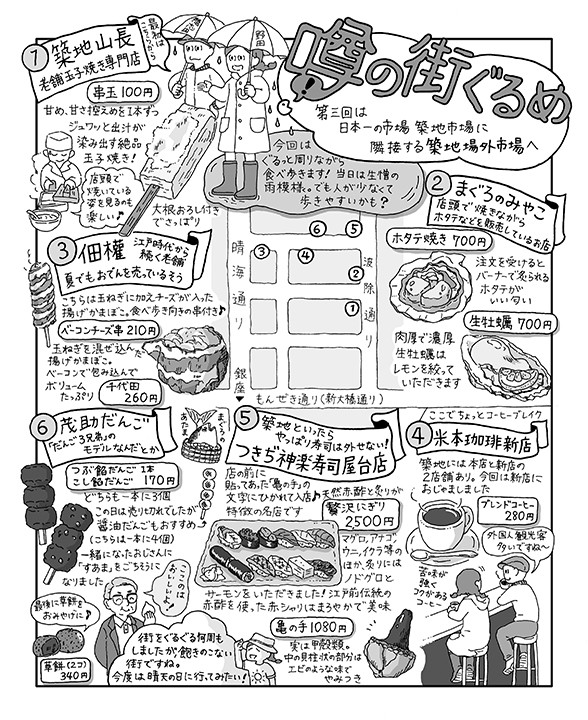 噂の街ぐるめ
第三回は
日本一の市場 築地市場に
隣接する築地場外市場へ
最初はこちらから
野田
今回は
ぐるっと周りながら
食べ歩きます!当日は生憎の
雨模様。でも人が少なくて
歩きやすいかも?
① 築地山長
老舗玉子焼き専門店
串玉100円
甘め、甘さ控えめを1本ずつ
ジュワッと出汁が
染み出す絶品
玉子焼き!
店頭で
焼いている
姿を見るのも
楽しい♪
大根おろし付き
でさっぱり
② まぐろのみやこ
店頭で焼きながら
ホタテなどを販売しているお店
ホタテ焼き 700円
注文を受けると
バーナーで炙られる
ホタテが
いい匂い
生牡蠣 700円
肉厚で濃厚
生牡蠣は
レモンを絞って
いただきます
③ 佃權
江戸時代から
続く老舗
夏でもおでんを売っているそう
こちらは玉ねぎに加えチーズが入った
揚げかまぼこ。食べ歩き向きの串付き♪
ベーコンチーズ串 210円
玉ねぎを混ぜ込んだ
揚げかまぼこ。
ベーコンで包み込んで
ボリューム
たっぷり
千代田
260円
⑥ ⑤
③ ④ ②
①
晴海通り
波除通り
銀座
もんぜき通り(新大橋通り)
ここでちょっとコーヒーブレイク
④ 米本珈琲新店
築地には本店と新店の
2店舗あり。今回は新店に
おじゃましました
ブレンドコーヒー
280円
外国人観光客
多いですね〜
苦味が
強く
コクがある
コーヒー
⑤ 築地といったら
やっぱり寿司は外せない!
つきぢ神楽寿司屋台店
まぐろの
あたま
店の前に
貼ってあった「亀の手」の
文字にひかれて入店♪
特徴の名店です
天然赤酢と炙りが
贅沢にぎり
2500円
マグロ、アナゴ、
ウニ、イクラ等の
ほか、炙りには
ノドグロと
サーモンをいただきました!江戸前伝統の
赤酢を使った赤シャリはまろやかで美味
亀の手1080円
実は甲殻類。
中の貝柱状の部分は
エビのような味で
やみつき
⑥ 茂助だんご
「だんご3兄弟」の
モデルなんだとか
つぶ餡だんご 1本
こし餡だんご 170円
どちらも一本に3個
この日は売り切れていたが
醤油だんごもおすすめ
(こちらは一本に4個)
一緒になったおじさんに
「すあま」をごちそうに
なりました
ここのは
おいしいよ!
最後に草餅を
おみやげに♪
草餅(2コ)
340円
街をぐるぐる何周も
しましたが飽きのこない
街ですね。
今度は晴天の日に行ってみたい!